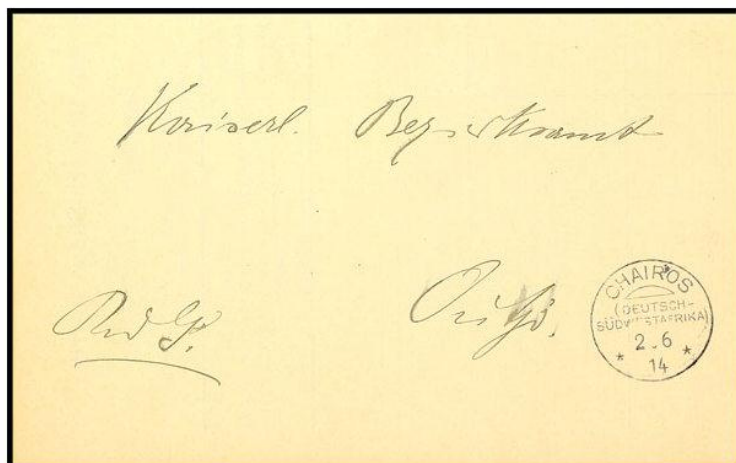 Kaiserl. Bezirksamt
Outjo.
CHAIROS
(DEUTSCH-
SÜDWESTAFRIKA)
2.6
* 14 *